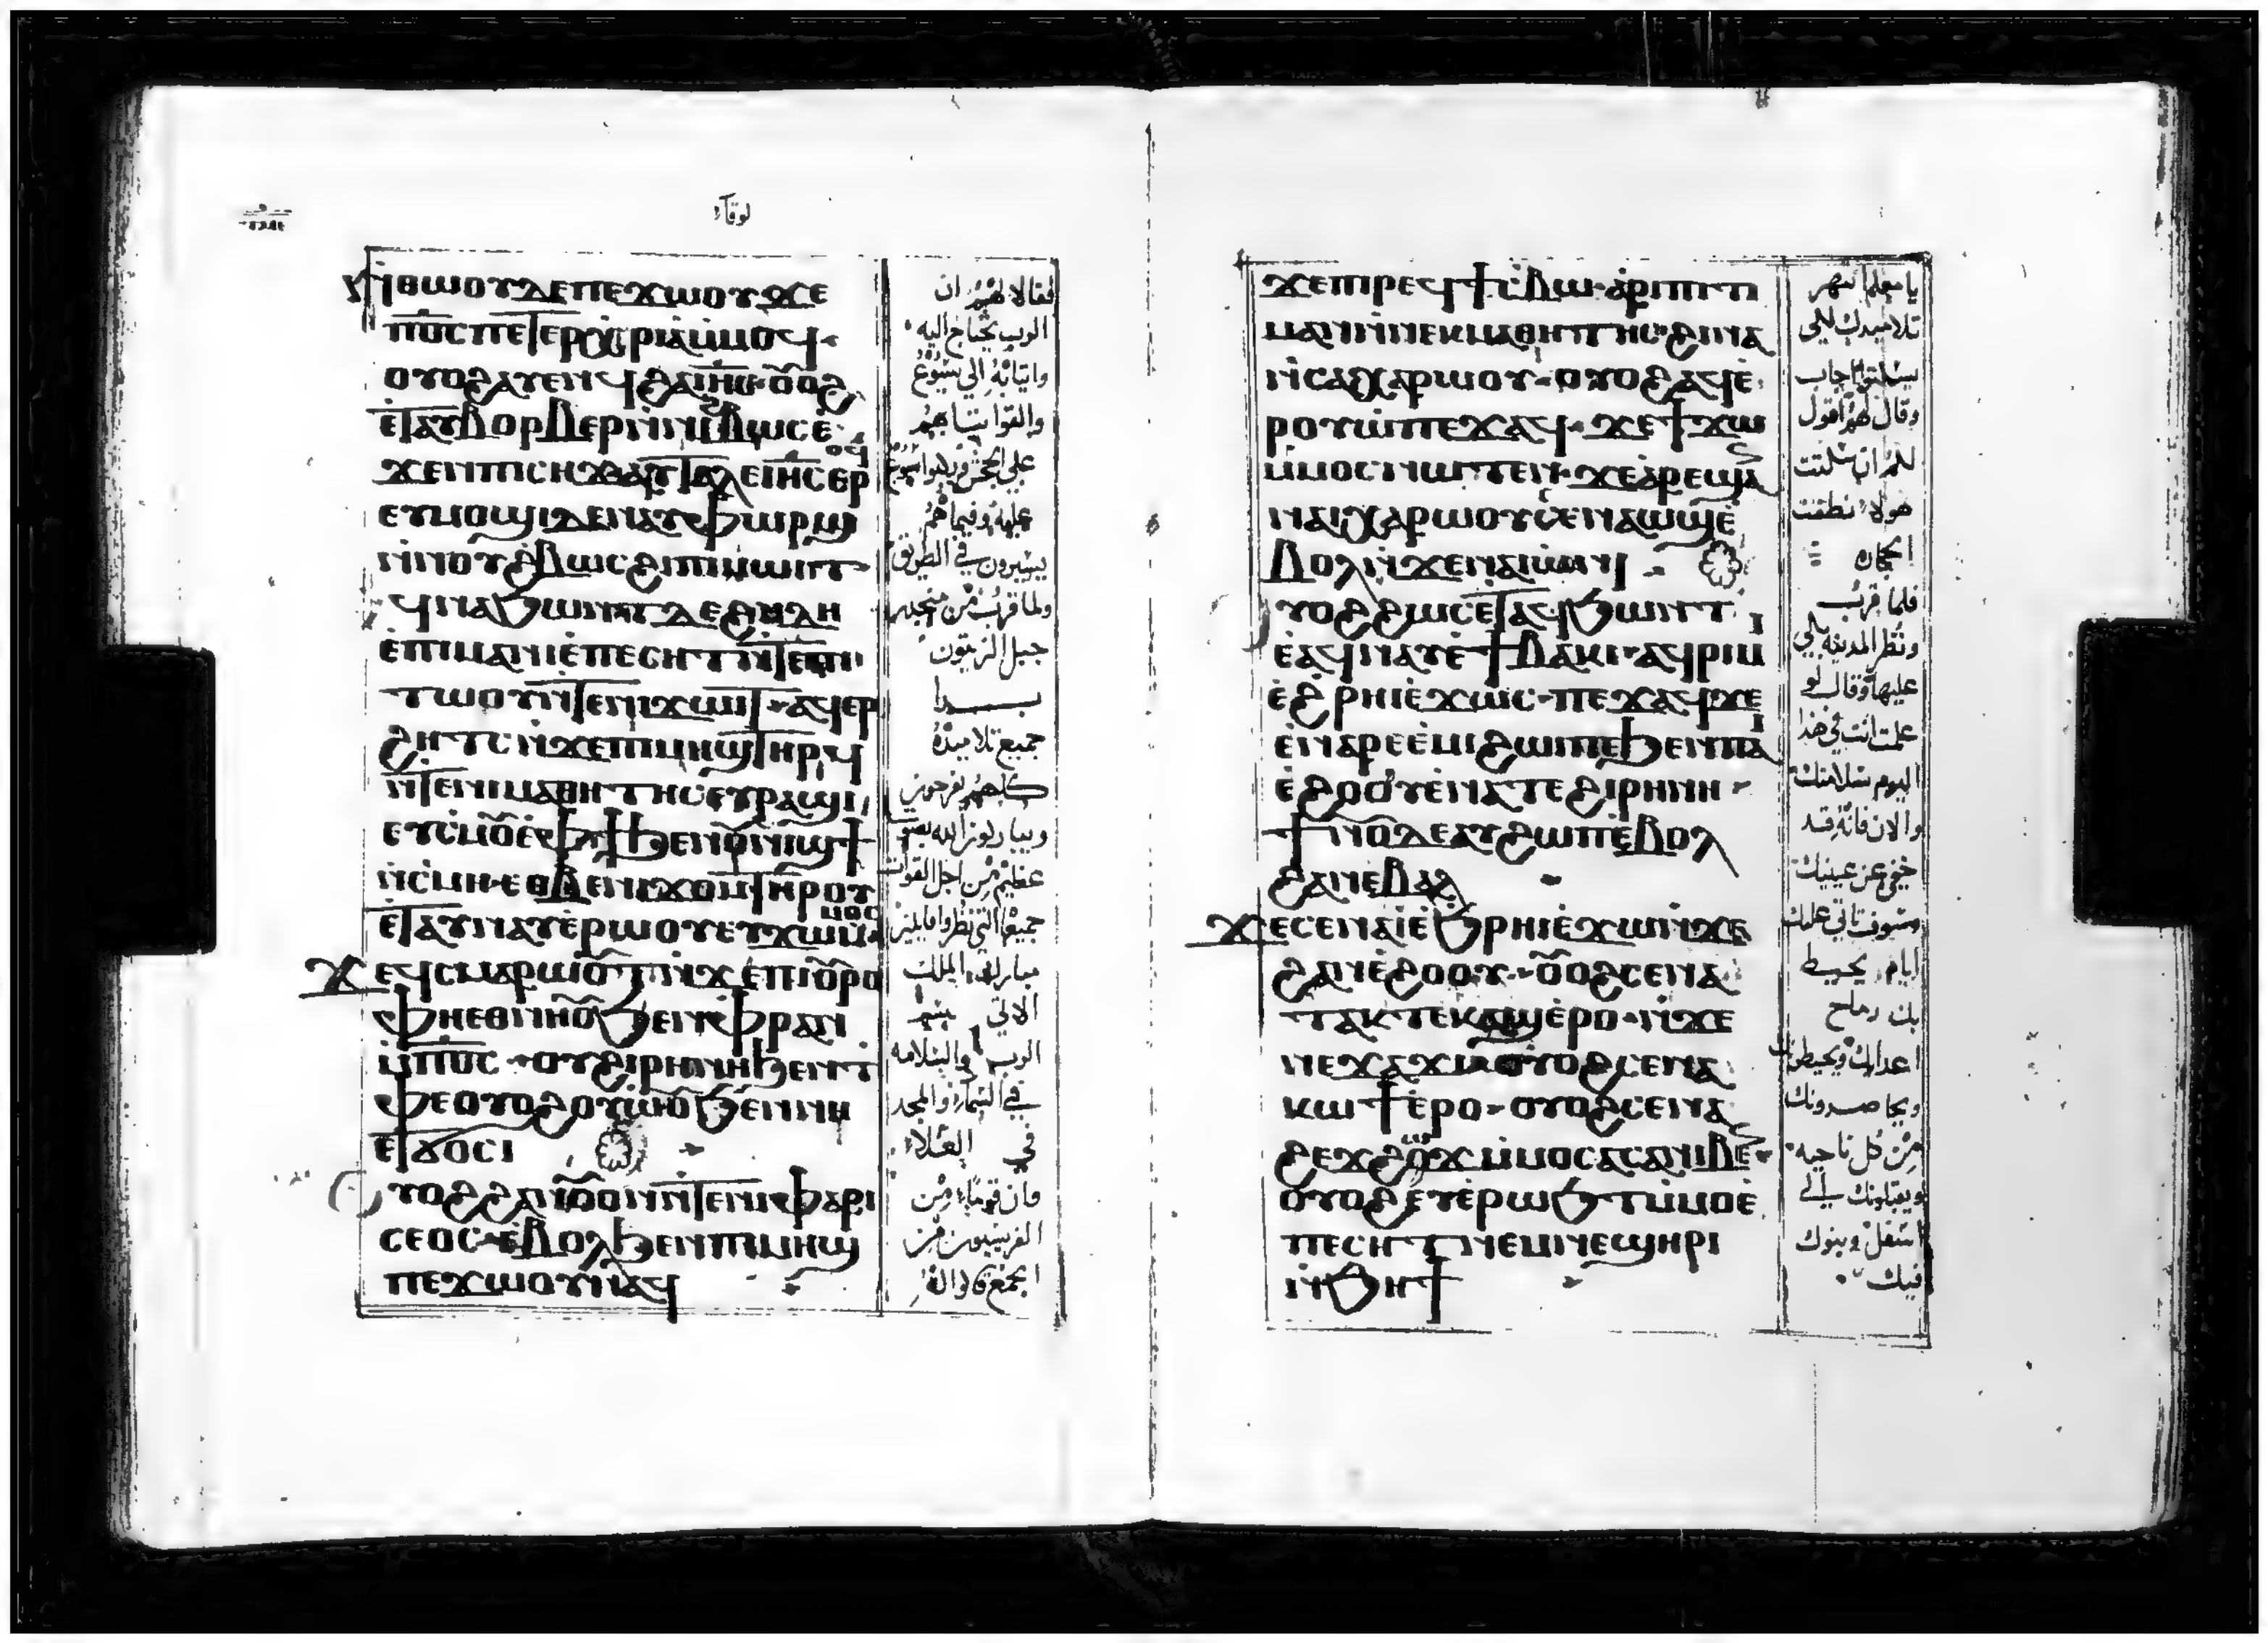 لوقا
ⲛ̀ⲑⲱⲟⲩ ⲇⲉ ⲡⲉϫⲱⲟⲩ ϫⲉ
ⲡϭⲥ ⲡⲉⲧⲉⲣⲭⲣⲓⲁ ⲙ̀ⲙⲟϥ
ⲟⲩⲟϩ ⲁⲩⲉⲛϥ ϩⲁ ⲓⲏⲥ ⲟⲟϩ
ⲉ̀ⲧⲁⲩⲃⲟⲣⲃⲉⲣ ⲛ̀ⲛⲟⲩϩ̀ⲃⲱⲥ ⲉ̀
ϫⲉⲛ ⲡⲓⲥⲏϫ ⲁⲩⲧⲁⲗⲉ ⲓⲏⲥ ⲉⲣⲟϥ
ⲉⲩⲙⲟϣⲓ ⲇⲉ ⲛⲁⲩⲫⲱⲣϣ
ⲛ̀ⲛⲟⲩϩ̀ⲃⲱⲥ ϩⲓ ⲡⲓⲙⲱⲓⲧ
ϥⲛⲁϧⲱⲛⲧ ⲇⲉ ϩⲏⲇⲏ
ⲉ̀ⲡⲓⲙⲁⲛⲓ ⲉ̀ⲡⲉⲥⲏⲧ ⲛ̀ⲧⲉ ⲡⲓ
ⲧⲱⲟⲩ ⲛ̀ⲧⲉ ⲛⲓϫⲱⲓⲧ ⲁϥⲉⲣ
ϩⲏⲧⲥ ⲛ̀ϫⲉ ⲡⲓⲙⲏϣ ⲧⲏⲣϥ
ⲛ̀ⲧⲉ ⲛⲓⲙⲁⲑⲏⲧⲏⲥ ⲉⲩⲣⲁϣⲓ
ⲉⲩⲥⲙⲟ ⲉ̀ⲫϯ ϧⲉⲛ ⲟⲩⲛⲓϣϯ
ⲛ̀ⲥⲙⲏ ⲉⲑⲃⲉ ⲛⲓϫⲟⲙ ⲧⲏⲣⲟⲩ
ⲉ̀ⲧⲁⲩⲛⲁⲩ ⲉ̀ⲣⲱⲟⲩ ⲉⲩϫⲱ ⲙ̀ⲙⲟⲥ
ϫⲉ ϥⲥⲙⲁⲣⲱⲟⲩⲧ ⲛ̀ϫⲉ ⲡⲓⲟⲩⲣⲟ
ⲫⲏⲉⲑⲛⲏⲟⲩ ϧⲉⲛ ⲫⲣⲁⲛ
ⲙ̀ⲡϭⲥ ⲟⲩϩⲓⲣⲏⲛⲏ ϧⲉⲛ ⲧ
ⲫⲉ ⲟⲩⲟϩ ⲟⲩⲱⲟⲩ ϧⲉⲛ ⲛⲏ
ⲉⲧϭⲟⲥⲓ
ⲟⲩⲟϩ ϩⲁⲛⲟⲩⲟⲛ ⲛ̀ⲧⲉ ⲛⲓⲫⲁⲣⲓ
ⲥⲉⲟⲥ ⲉ̀ⲃⲟⲗ ϧⲉⲛ ⲡⲓⲙⲏϣ
ⲡⲉϫⲱⲟⲩ ⲛⲁϥ
فقالا لهم ان
الرب يحتاج اليه
واتيا به الي يسوع
والقوا ثيابهم
علي الجحش وركبوا يسوع
عليه وفيما هم
يسيرون في الطريق
ولما قرب من منحدر
جبل الزيتون
بدا
جميع تلاميذه
كلهم يفرحون
ويباركون الله بصوت
عظيم من اجل القوات
جميعها التي نظروا قايلين
مبارك الملك
الاتي بسم
الرب والسلامه
في السما والمجد
في العلاء
وان قوما من
الفريسيون من
الجمع قالوا له
ϫⲉ ⲡⲓⲣⲉϥϯⲥ̀ⲃⲱ ⲁ̀ⲣⲓⲉⲡⲓⲧⲓ
ⲙⲁⲛ ⲛ̀ⲛⲉⲕⲙⲁⲑⲏⲧⲏⲥ ϩⲓⲛⲁ
ⲛ̀ⲥⲉⲭⲁⲣⲱⲟⲩ ⲟⲩⲟϩ ⲁϥⲉ̀
ⲣⲟⲩⲱ̀ ⲡⲉϫⲁϥ ϫⲉ ϯϫⲱ
ⲙ̀ⲙⲟⲥ ⲛⲱⲧⲉⲛ ϫⲉ ⲁ̀ⲣⲉϣⲁ
ⲛⲁⲓ ⲭⲁⲣⲱⲟⲩ ⲥⲉⲛⲁⲱϣ ⲉ̀
ⲃⲟⲗ ⲛ̀ϫⲉ ⲛⲁⲓⲱ̀ⲛⲓ
ⲟⲩⲟϩ ϩⲱⲥ ⲉⲧⲁϥϧⲱⲛⲧ
ⲉⲁϥⲛⲁⲩ ⲉ̀ϯⲃⲁⲕⲓ ⲁϥⲣⲓⲙⲓ
ⲉ̀ϩ̀ⲣⲏⲓ ⲉ̀ϫⲱⲥ ⲡⲉϫⲁϥ ϫⲉ
ⲉ̀ⲛⲁⲣⲉⲉ̀ⲙⲓ ϩⲱⲓ ⲡⲉ ϧⲉⲛ ⲡⲁⲓ
ⲉ̀ϩⲟⲟⲩ ⲉ̀ⲛⲁ ⲧⲉϩⲓⲣⲏⲛⲏ
ϯⲛⲟⲩ ⲇⲉ ⲁⲩϩⲱⲡ ⲉ̀ⲃⲟⲗ
ϩⲁ ⲛⲉⲃⲁⲗ
ϫⲉ ⲥⲉⲛⲁⲓ̀ ⲉ̀ϧⲣⲏⲓ ⲉ̀ϫⲱ ⲛ̀ϫⲉ
ϩⲁⲛⲉ̀ϩⲟⲟⲩ ⲟⲟϩ ⲥⲉⲛⲁ
ⲧⲁⲕⲧⲉ ⲕⲁϣ ⲉ̀ⲣⲟ ⲛ̀ϫⲉ
ⲛⲉϫⲁϫⲓ ⲟⲩⲟϩ ⲥⲉⲛⲁ
ⲕⲱϯ ⲉ̀ⲣⲟ ⲟⲩⲟϩ ⲥⲉⲛⲁ
ϩⲉϫϩⲱϫ ⲙ̀ⲙⲟ ⲥⲁⲥⲁ ⲛⲓⲃⲉⲛ
ⲟⲩⲟϩ ⲉⲩⲉ̀ⲣⲱϧⲧ ⲙ̀ⲙⲟ ⲉ̀
ⲡⲉⲥⲏⲧ ⲛⲉⲙ ⲛⲉϣⲏⲣⲓ
ⲛ̀ϧⲏϯ
يا معلم انتهر
تلاميذك لكي
يسكتوا اجاب
وقال لهم اقول
لكم ان سكتت
هولاء نطقت
الحجاره
فلما قرب
ونظر المدينه بكي
عليها وقال لو
علمت انت في هذا
اليوم سلامتك
والان فانه قد
خفي عن عينيك
وسوف تاتي عليك
ايام يحيط
بك رماح
اعداك ويحيطونك
ويحاصرونك
من كل ناحيه
ويقلبونك الي
اسفل وبنوك
فيك